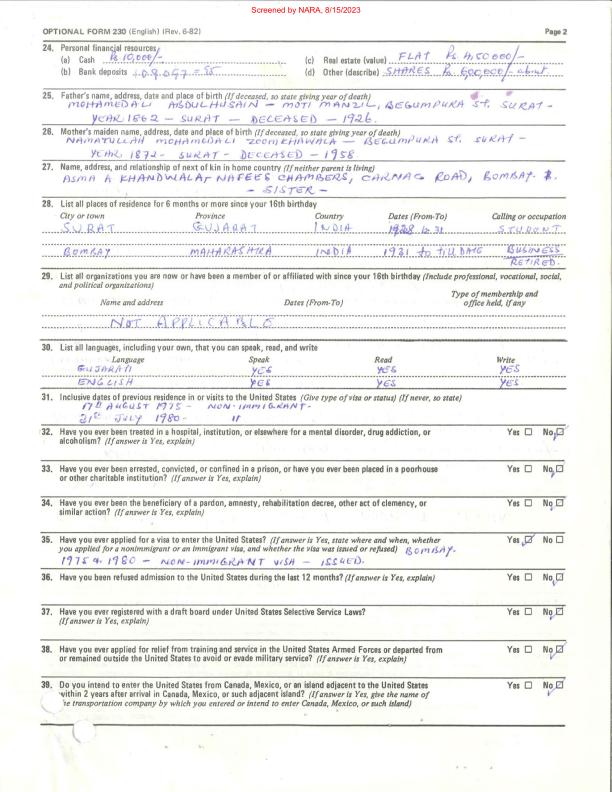 Screened by NARA, 8/15/2023
OPTIONAL FORM 230 (English) (Rev. 6-82) Page 2
24. Personal financial resources
(a) Cash Rs 10,000/- (c) Real estate (value) FLAT Rs. 4,50,000/-
(b) Bank deposits 109,097=55 (d) Other (describe) SHARES Rs. 600,000/- about
25. Father's name, address, date and place of birth (If deceased, so state giving year of death)
MOHAMEDALI ABDULHUSAIN - MOTI MANZIL, BEGUMPURA ST. SURAT -
YEAR 1862 - SURAT - DECEASED - 1926.
26. Mother's maiden name, address, date and place of birth (If deceased, so state giving year of death)
NAMATULLAH MOHAMEDALI ZOOMKHAWALA - BEGUMPURA ST. SURAT -
YEAR 1872 - SURAT - DECEASED - 1958
27. Name, address, and relationship of next of kin in home country (If neither parent is living)
ASMA A KHANDWALA, NAFEES CHAMBERS, CARNAC ROAD, BOMBAY.
- SISTER -
28. List all places of residence for 6 months or more since your 16th birthday
City or town Province Country Dates (From-To) Calling or occupation
SURAT GUJARAT INDIA 1928 to 31 STUDENT
BOMBAY MAHARASHTRA INDIA 1931 to TILL DATE BUSINESS
RETIRED.
29. List all organizations you are now or have been a member of or affiliated with since your 16th birthday (Include professional, vocational, social,
and political organizations)
Name and address Dates (From-To) Type of membership and
office held, if any
NOT APPLICABLE
30. List all languages, including your own, that you can speak, read, and write
Language Speak Read Write
GUJARATI YES YES YES
ENGLISH YES YES YES
31. Inclusive dates of previous residence in or visits to the United States (Give type of visa or status) (If never, so state)
17th AUGUST 1975 - NON-IMMIGRANT -
31st JULY 1980 - "
32. Have you ever been treated in a hospital, institution, or elsewhere for a mental disorder, drug addiction, or Yes ☐ No ☑
alcoholism? (If answer is Yes, explain)
33. Have you ever been arrested, convicted, or confined in a prison, or have you ever been placed in a poorhouse Yes ☐ No ☑
or other charitable institution? (If answer is Yes, explain)
34. Have you ever been the beneficiary of a pardon, amnesty, rehabilitation decree, other act of clemency, or Yes ☐ No ☑
similar action? (If answer is Yes, explain)
35. Have you ever applied for a visa to enter the United States? (If answer is Yes, state where and when, whether Yes ☑ No ☐
you applied for a nonimmigrant or an immigrant visa, and whether the visa was issued or refused) BOMBAY.
1975 & 1980 - NON-IMMIGRANT VISA - ISSUED.
36. Have you been refused admission to the United States during the last 12 months? (If answer is Yes, explain) Yes ☐ No ☑
37. Have you ever registered with a draft board under United States Selective Service Laws? Yes ☐ No ☑
(If answer is Yes, explain)
38. Have you ever applied for relief from training and service in the United States Armed Forces or departed from Yes ☐ No ☑
or remained outside the United States to avoid or evade military service? (If answer is Yes, explain)
39. Do you intend to enter the United States from Canada, Mexico, or an island adjacent to the United States Yes ☐ No ☑
within 2 years after arrival in Canada, Mexico, or such adjacent island? (If answer is Yes, give the name of
the transportation company by which you entered or intend to enter Canada, Mexico, or such island)